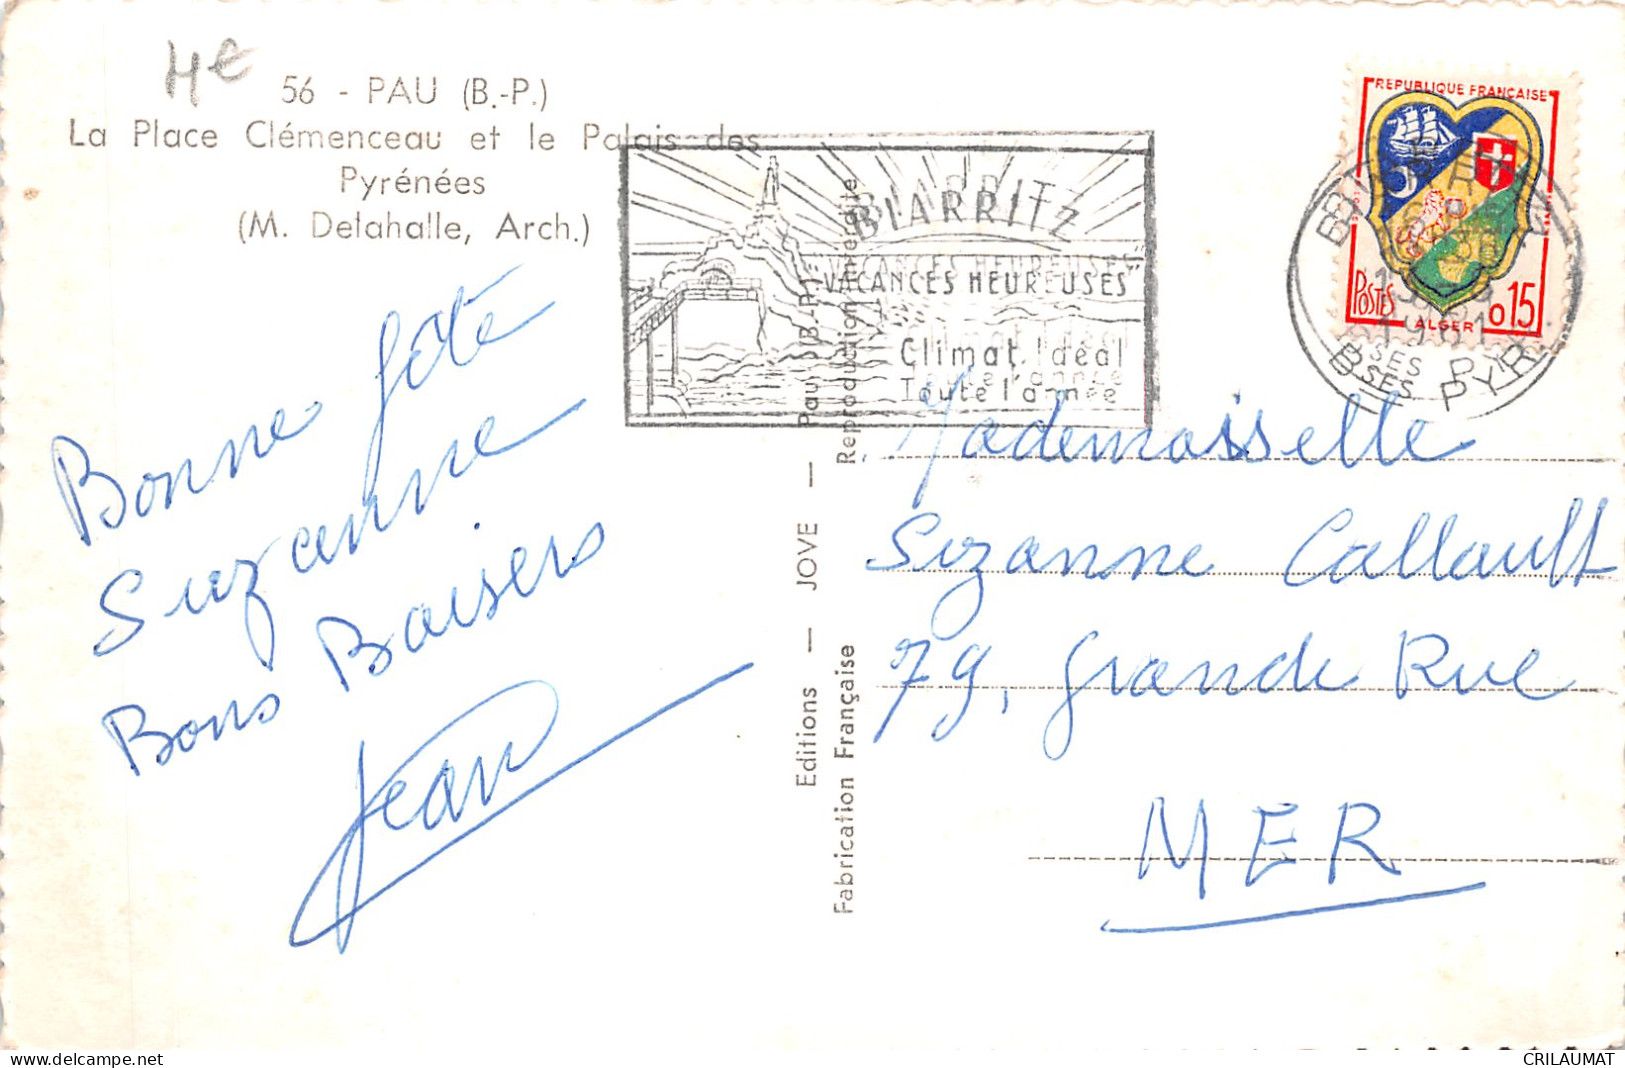 4€
56 - PAU (B.-P.)
La Place Clémenceau et le Palais des
Pyrénées
(M. Delahalle, Arch.)
Bonne fête
Suzanne
Bons Baisers
Jean
Editions — JOVE — Pau (B.-P.)
Fabrication Française
Reproduction Interdite
BIARRITZ
"VACANCES HEUREUSES"
Climat Idéal
Toute l'année
REPUBLIQUE FRANÇAISE
POSTES
ALGER
0,15
BIARRITZ
1961
BSES PYR.
Mademoiselle
Suzanne Callault
79, Grande Rue
MER
delcampe.net
CRILAUMAT